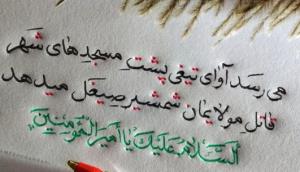 می رسد آوای تیغی پشت مسجدهای شهر
قاتل مولایمان شمشیر صیغل میدهد
اَلسَّلامُ عَلَیْكَ یا اَمیرَالْمُؤمِنینَ